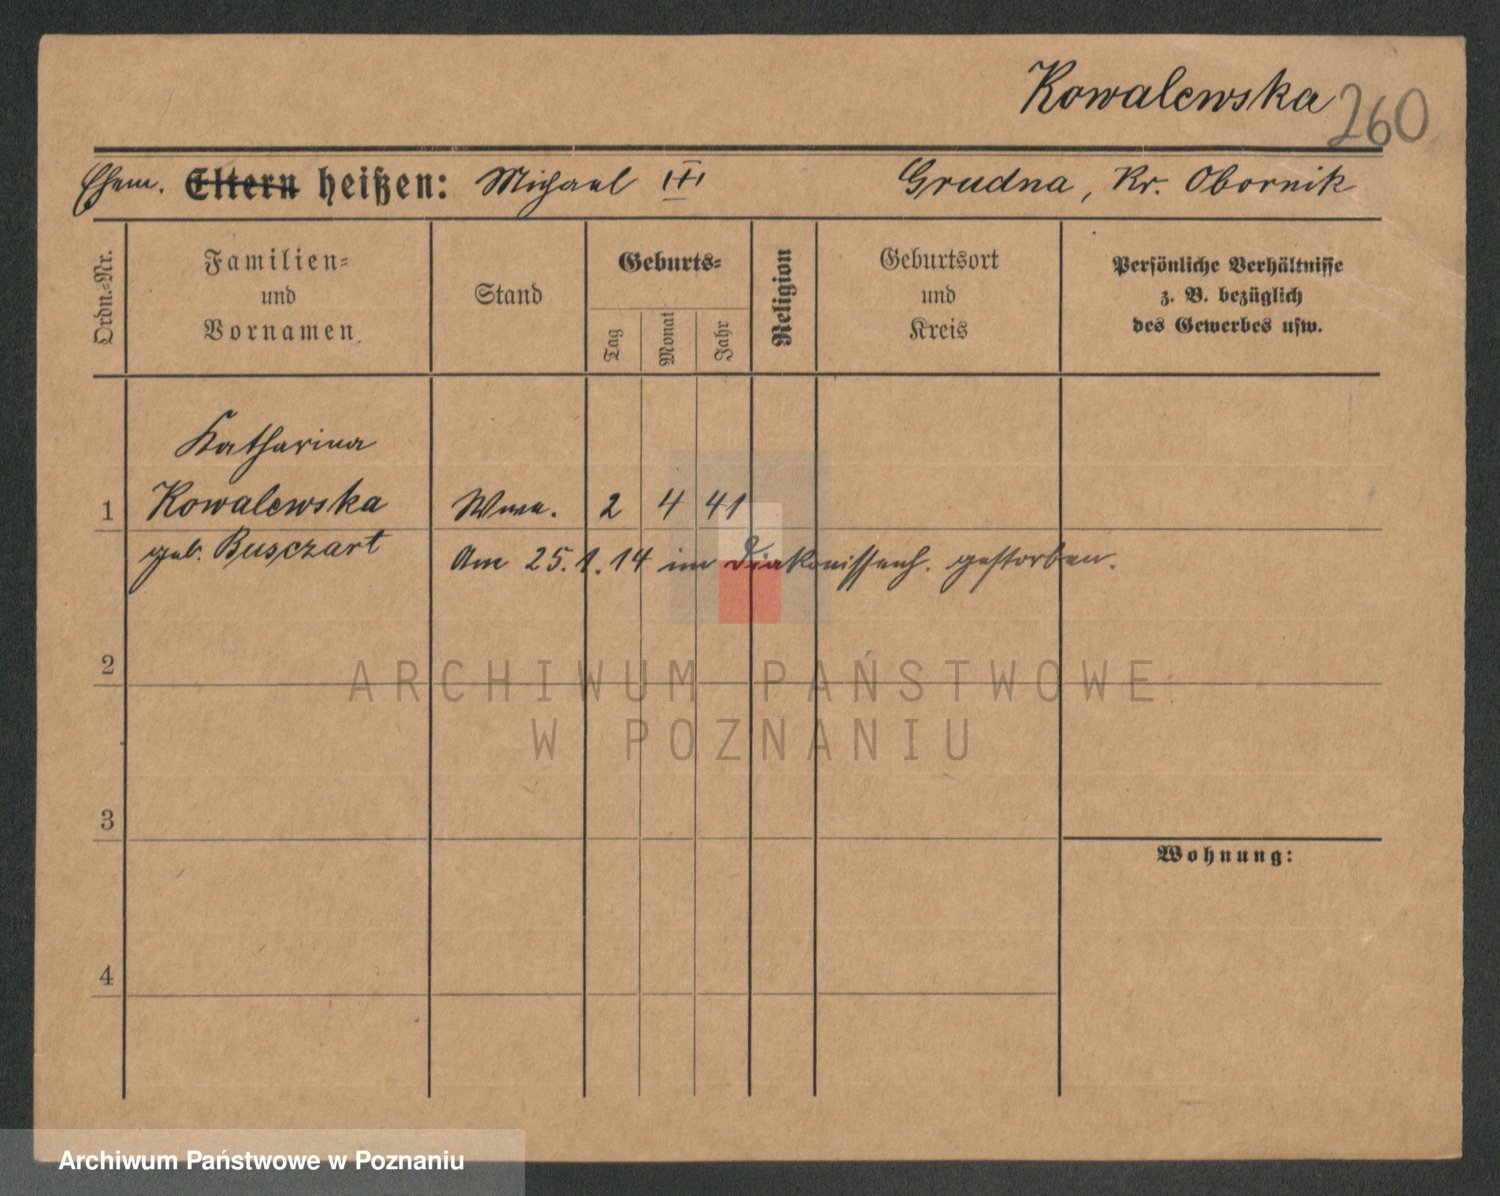 Kowalewska 260
Ehem. Eltern heißen: Michael III Grudna, Kr. Obornik
Ordn.-Nr.
Familien-
und
Vornamen.
Stand
Geburts-
Tag
Monat
Jahr
Religion
Geburtsort
und
Kreis
Persönliche Verhältnisse
z. B. bezüglich
des Gewerbes usw.
Katharina
1 Kowalewska Wwe. 2 4 41
geb. Busczart Am 25.1.14 im Diakonissenh. gestorben.
2
ARCHIWUM PAŃSTWOWE
W POZNANIU
3
Wohnung:
4
Archiwum Państwowe w Poznaniu